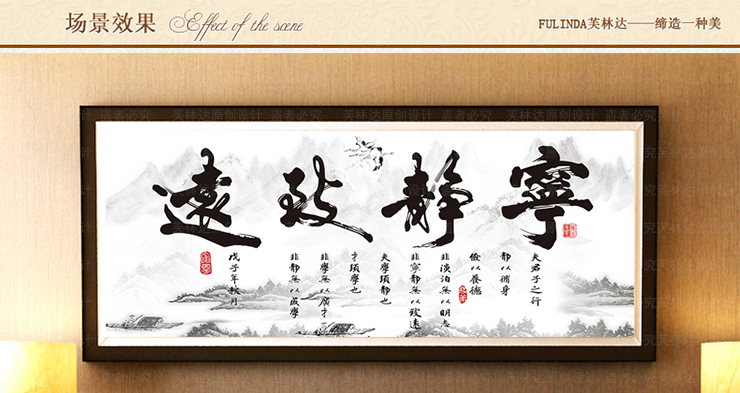 场景效果 Effect of the scene
FULINDA芙林达——缔造一种美
芙林达原创设计 盗者必究
寧靜致遠
夫君子之行
靜以脩身
儉以養德
非淡泊無以明志
非寧靜無以致遠
夫學須靜也
才須學也
非學無以廣才
非靜無以成學
戊子年秋月